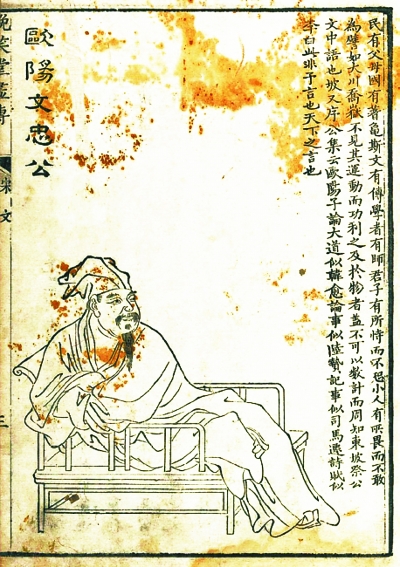 民有父母國有蓍龜斯文有傳學者有師君子有所恃而不恐小人有所畏而不敢
為譬如大川喬嶽不見其運動而功利之及於物者蓋不可以數計而周知東坡祭公
文中語也坡又序公集云歐陽子論大道似韓愈論事似陸贄記事似司馬遷詩賦似
李白此非予言也天下之言也
歐陽文忠公
晚笑堂畫傳
文
三